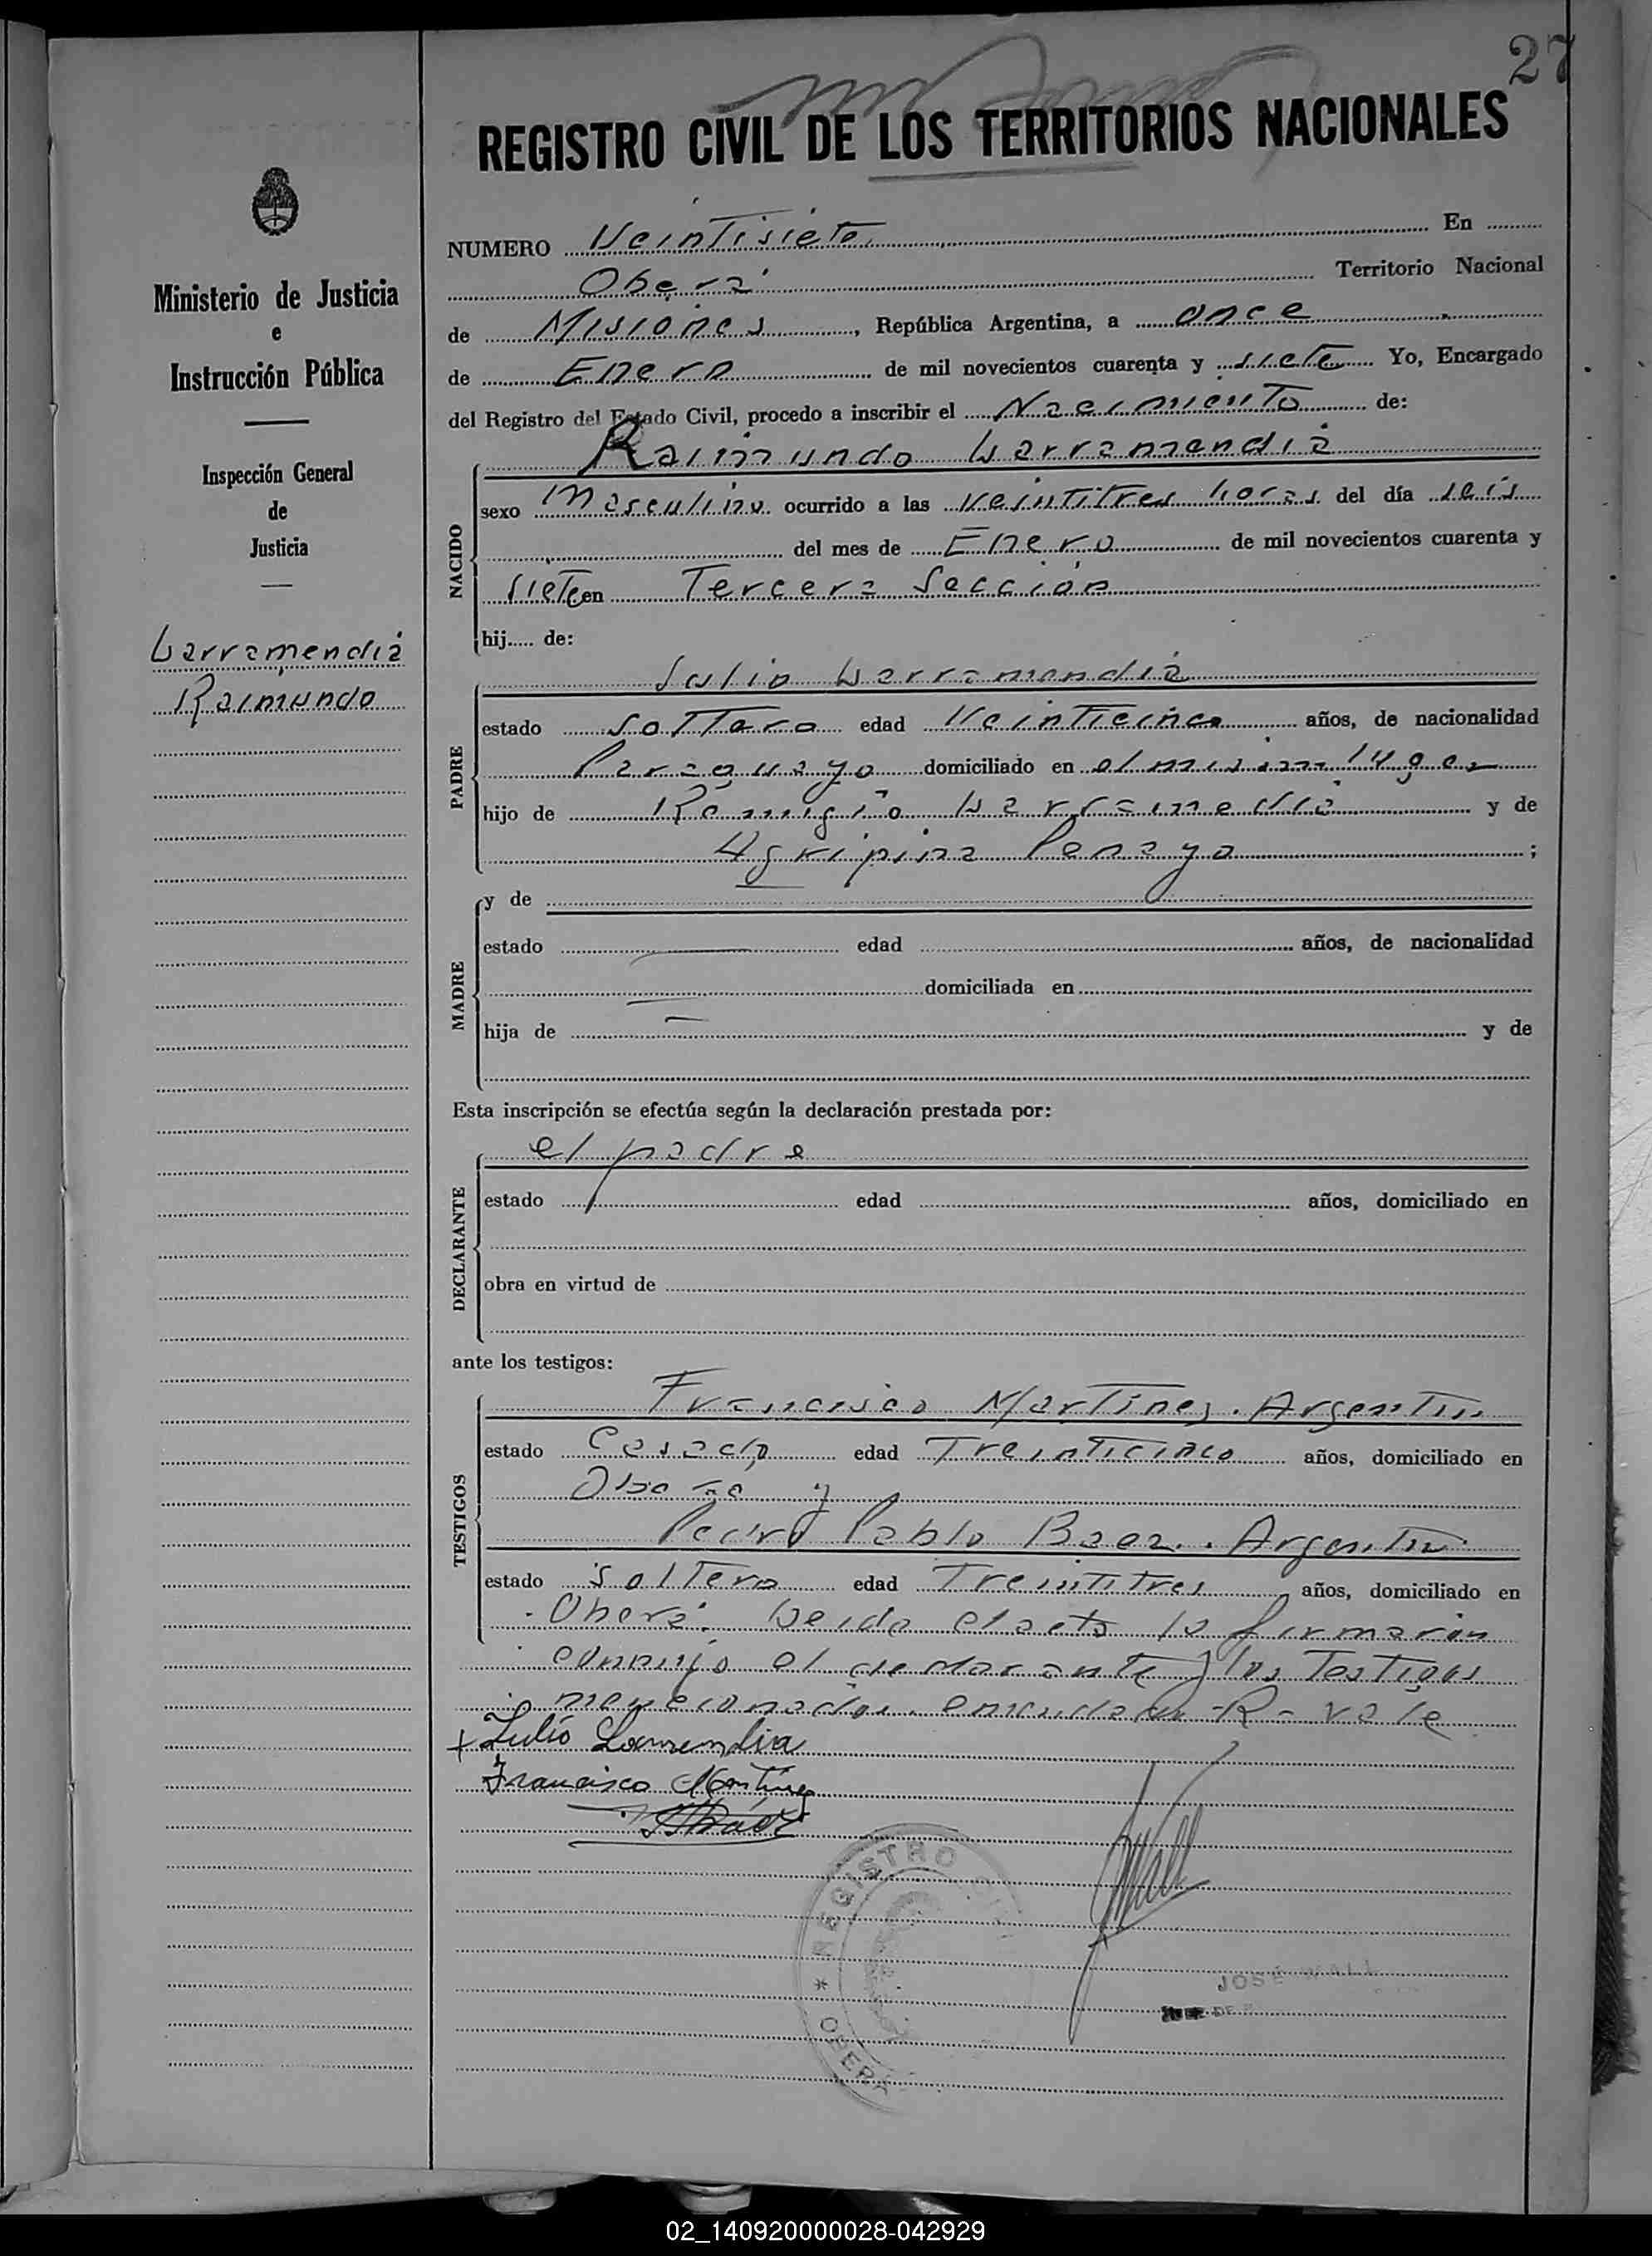 27
REGISTRO CIVIL DE LOS TERRITORIOS NACIONALES
Ministerio de Justicia
e
Instrucción Pública
Inspección General
de
Justicia
Larramendia
Raimundo
NUMERO Veintisiete En
Oberá Territorio Nacional
de Misiones, República Argentina, a once
de Enero de mil novecientos cuarenta y siete Yo, Encargado
del Registro del Estado Civil, procedo a inscribir el Nacimiento de:
NACIDO
Raimundo Larramendia
sexo Masculino ocurrido a las veintitres horas del día seis
del mes de Enero de mil novecientos cuarenta y
siete en Tercera Sección
hij..... de:
PADRE
Julio Larramendia
estado soltero edad Veinticinco años, de nacionalidad
Paraguayo domiciliado en el mismo lugar
hijo de Remigio Larramedia y de
Agripina Penayo ;
MADRE
y de
estado edad años, de nacionalidad
domiciliada en
hija de y de
Esta inscripción se efectúa según la declaración prestada por:
DECLARANTE
el padre
estado edad años, domiciliado en
obra en virtud de
ante los testigos:
TESTIGOS
Francisco Martinez. Argentin
estado Casado edad Treinticinco años, domiciliado en
Oberá y
Pedro Pablo Baez. Argentin
estado Soltero edad Treintitres años, domiciliado en
Oberá. Leida el acta la firmarón
conmigo el declarante y los Testigos
mencionados. enmendado -R- vale
+ Julio Larramendia
Francisco Martinez
Báez
REGISTRO
* OBERÁ
JOSÉ WALL
DE
02_140920000028-042929